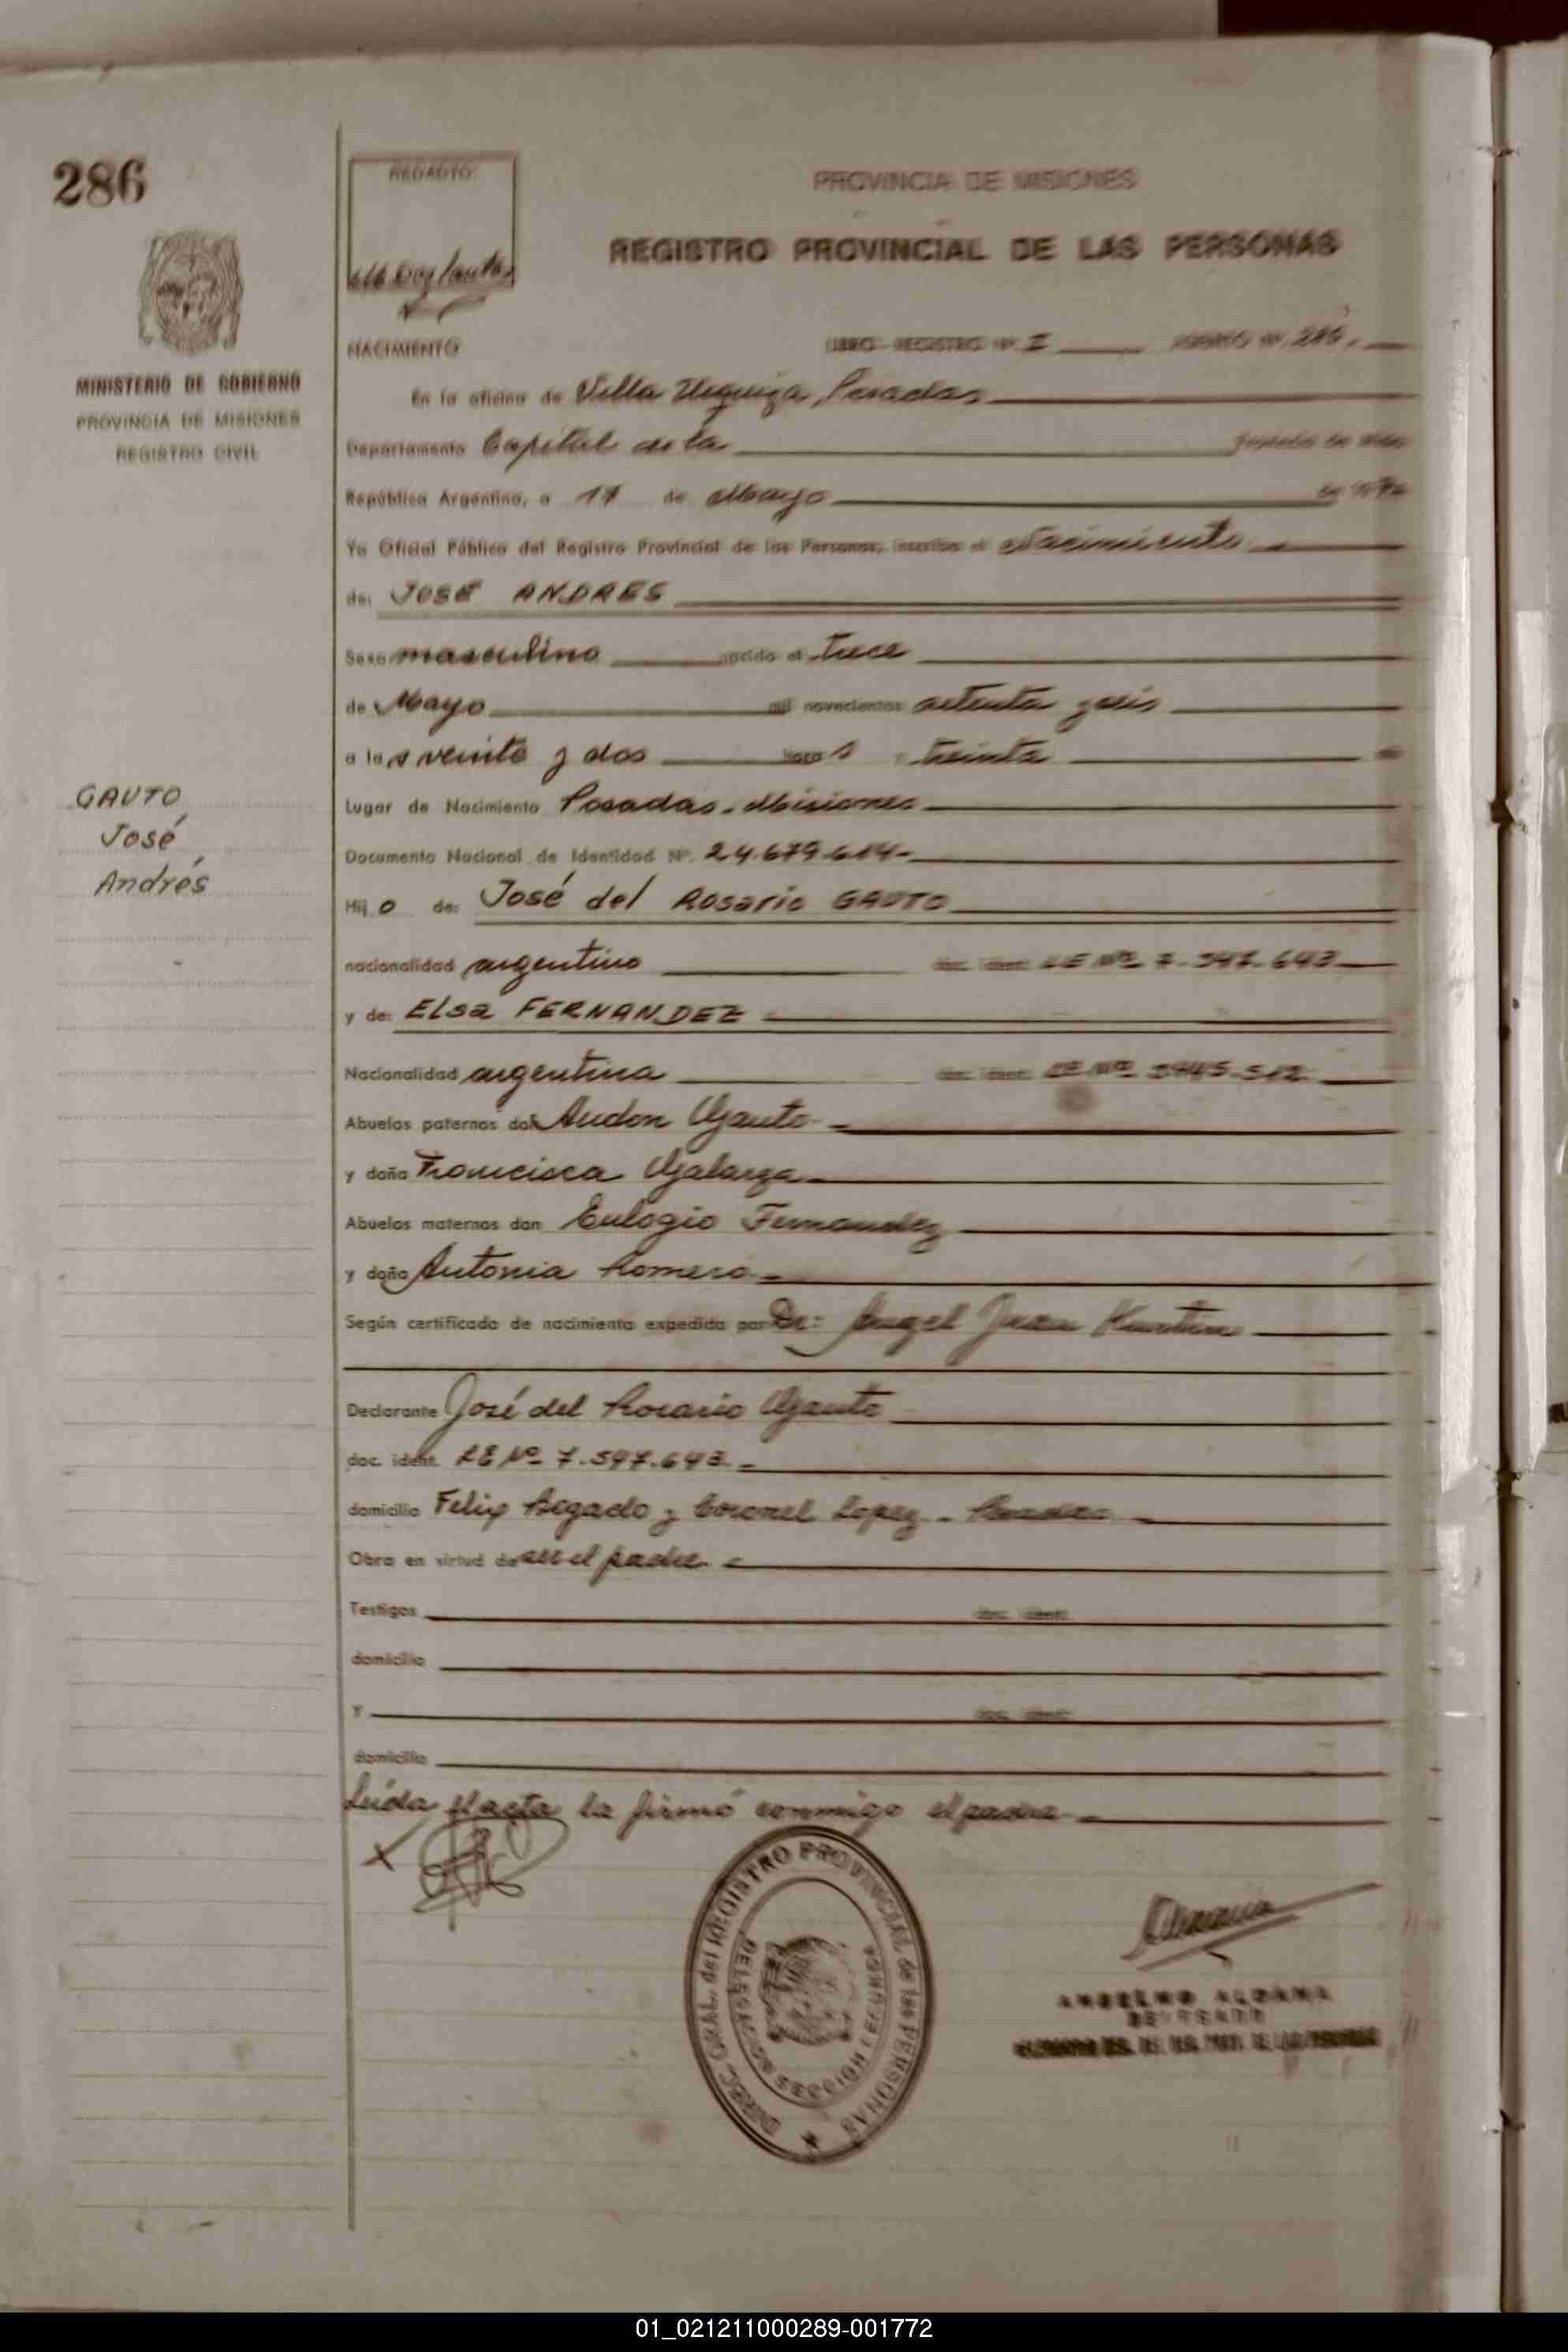 286
REDACTO:
PROVINCIA DE MISIONES
REGISTRO PROVINCIAL DE LAS PERSONAS
MINISTERIO DE GOBIERNO
PROVINCIA DE MISIONES
REGISTRO CIVIL
NACIMIENTO
LIBRO REGISTRO Nº I ASIENTO Nº 286.
En la oficina de Villa Urquiza, Posadas
Departamento Capital de la
República Argentina, a 17 de Mayo de 1976
Yo Oficial Público del Registro Provincial de las Personas, inscribo el Nacimiento
de: JOSÉ ANDRES
Sexo masculino nacido el trece
de Mayo mil novecientos setenta y seis
a las veinte y dos horas treinta
Lugar de Nacimiento Posadas - Misiones
Documento Nacional de Identidad Nº. 24.679.614-
GAUTO
José
Andrés
Hijo de: José del Rosario GAUTO
nacionalidad argentino doc. ident. LE Nº 7.547.643
y de: Elsa FERNANDEZ
Nacionalidad argentina doc. ident.
Abuelos paternos don Audon Gauto
y doña Francisca Galarza
Abuelos maternos don Eulogio Fernandez
y doña Antonia Romero
Según certificado de nacimiento expedido por Dr: Angel Juan
Declarante José del Rosario Gauto
doc. ident. LE Nº 7.547.643
domicilio Felix Bogado y Coronel Lopez - Posadas
Obra en virtud de ser el padre
Testigos doc. ident.
domicilio
y doc. ident.
domicilio
Leída el acta la firmó conmigo el padre
DIREC. GRAL. del REGISTRO PROVINCIAL de las PERSONAS
DELEGACION SECCION SEGUNDA
ANSELMO ALDANA
DELEGADO
01_021211000289-001772